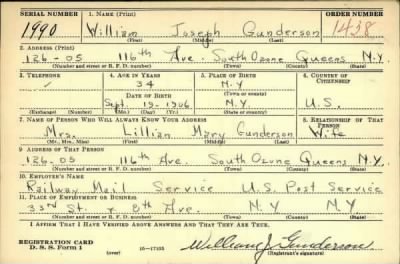 SERIAL NUMBER 1. NAME (Print) ORDER NUMBER
1990 William Joseph Gunderson 1438
(First) (Middle) (Last)
2. ADDRESS (Print)
126-05 116th Ave. South Ozone Queens N.Y.
(Number and street or R. F. D. number) (Town) (County) (State)
3. TELEPHONE 4. AGE IN YEARS 5. PLACE OF BIRTH 6. COUNTRY OF CITIZENSHIP
34 N.Y.
DATE OF BIRTH (Town or county)
Sept. 19-1906 N.Y. U.S.
(Exchange) (Number) (Mo.) (Day) (Yr.) (State or country)
7. NAME OF PERSON WHO WILL ALWAYS KNOW YOUR ADDRESS 8. RELATIONSHIP OF THAT PERSON
Mrs. Lillian Mary Gunderson Wife
(Mr., Mrs., Miss) (First) (Middle) (Last)
9. ADDRESS OF THAT PERSON
126-05 116th Ave. South Ozone Queens N.Y.
(Number and street or R. F. D. number) (Town) (County) (State)
10. EMPLOYER'S NAME
Railway Mail Service U.S. Post Service
11. PLACE OF EMPLOYMENT OR BUSINESS
33rd St. & 8th Ave. N.Y. N.Y.
(Number and street or R. F. D. number) (Town) (County) (State)
I AFFIRM THAT I HAVE VERIFIED ABOVE ANSWERS AND THAT THEY ARE TRUE.
REGISTRATION CARD
D. S. S. Form 1 16-17105 William J. Gunderson
(Registrant's signature)